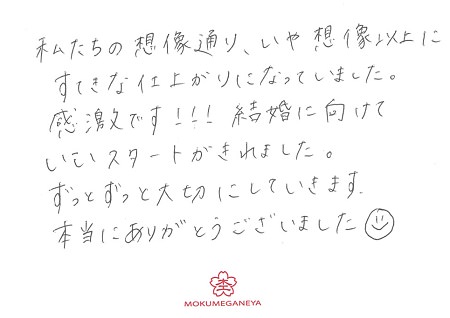 私たちの想像通り、いや想像以上に
すてきな仕上がりになっていました。
感激です!!!結婚に向けて
いいスタートがきれました。
ずっとずっと大切にしていきます.
本当にありがとうございました
MOKUMEGANEYA